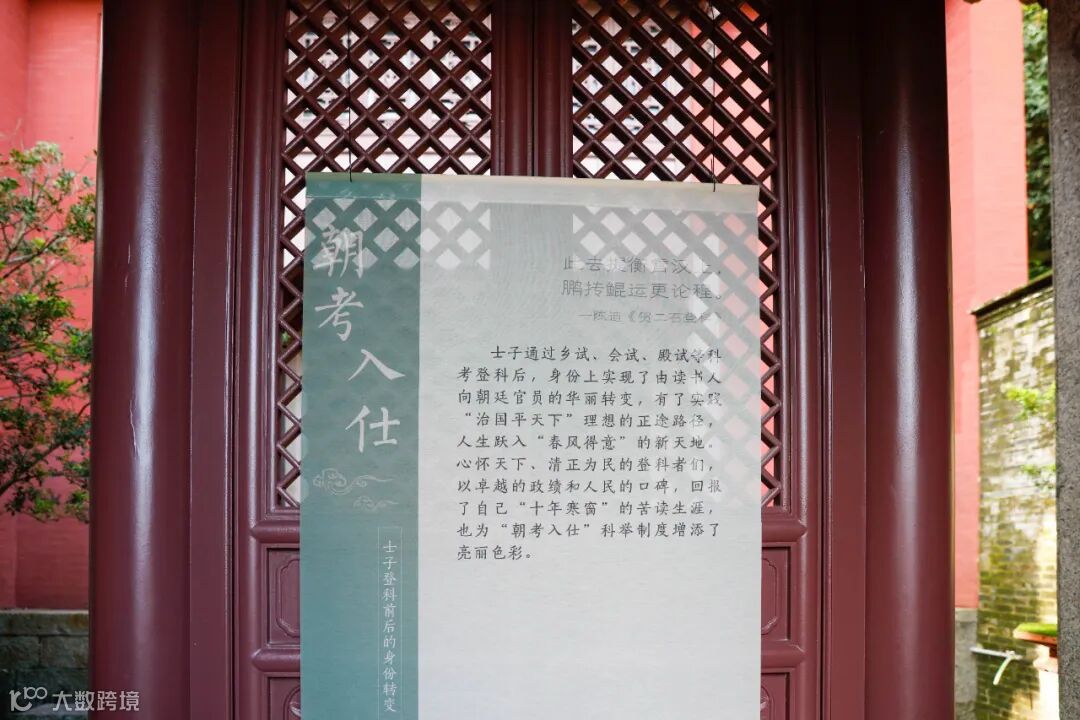 朝考入仕
士子登科前后的身份转变
此去提衡霄汉上，
鹏抟鲲运更论程。
—陈造《贺二石登科》
士子通过乡试、会试、殿试等科
考登科后，身份上实现了由读书人
向朝廷官员的华丽转变，有了实践
“治国平天下”理想的正途路径，
人生跃入“春风得意”的新天地。
心怀天下、清正为民的登科者们，
以卓越的政绩和人民的口碑，回报
了自己“十年寒窗”的苦读生涯，
也为“朝考入仕”科举制度增添了
亮丽色彩。
大数跨境